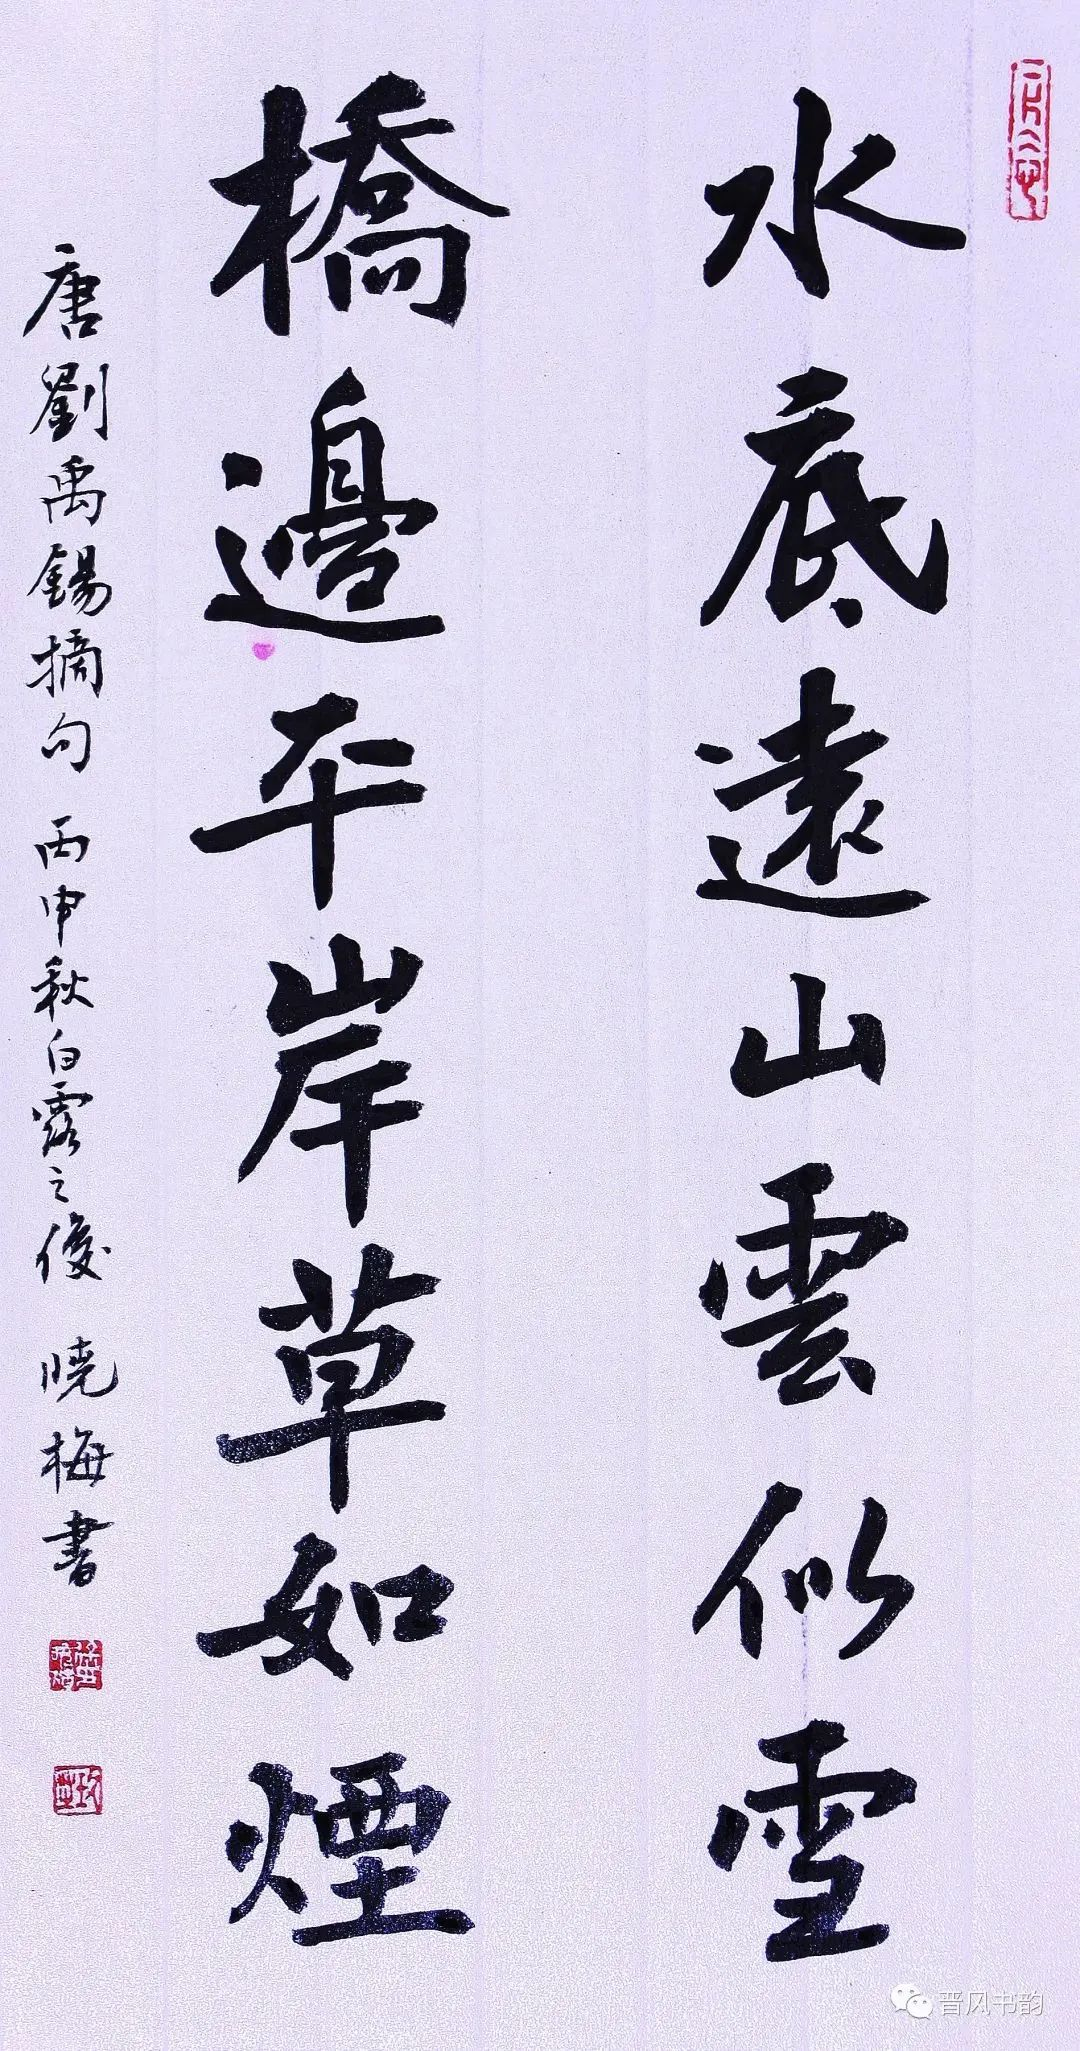 水底遠山雲似雪
橋邊平岸草如煙
唐劉禹錫摘句 丙申秋白露之後 曉梅書
晋风书韵